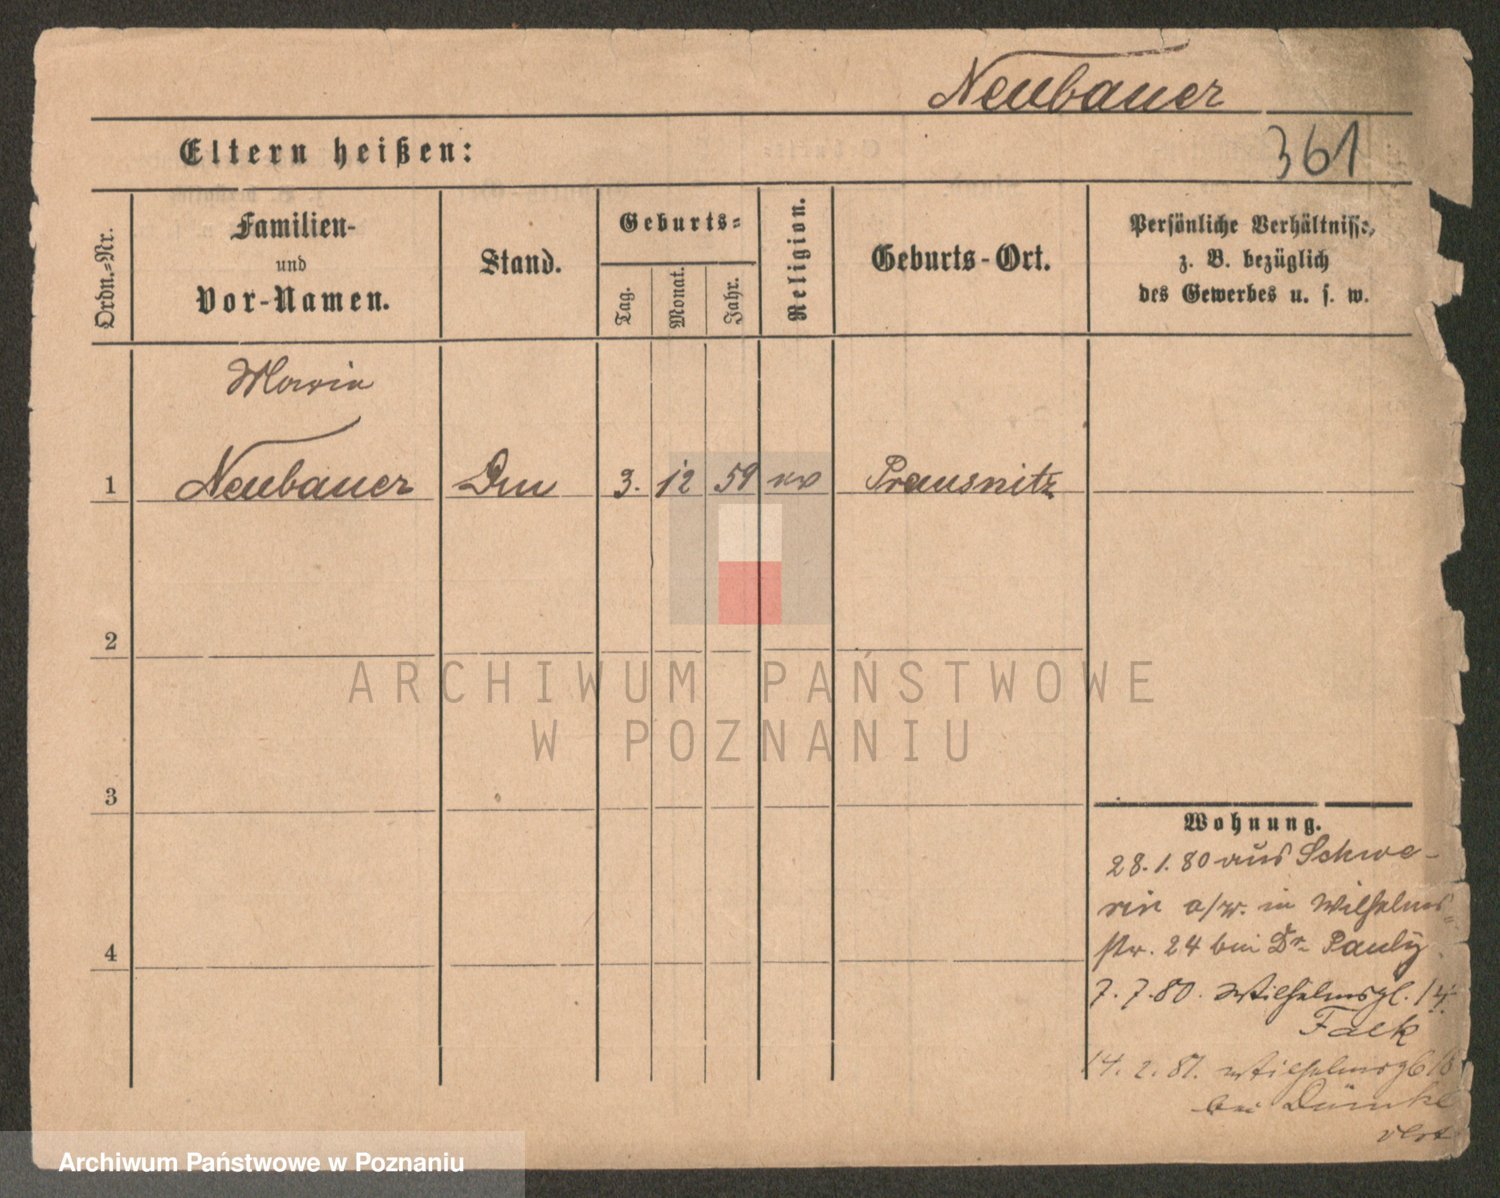 Neubauer
Eltern heißen:
361
Ordn.-Nr.
Familien-
und
Vor-Namen.
Stand.
Geburts-
Tag.
Monat.
Jahr.
Religion.
Geburts-Ort.
Persönliche Verhältnisse,
z. B. bezüglich
des Gewerbes u. s. w.
Maria
1 Neubauer 3. 12 59 Prausnitz
2
3
4
Wohnung.
28.1.80 aus Schwe-
rin a/W. in Wilhelms-
str. 24 bei Dr Pauly.
7.7.80. Wilhelmspl. 14
Falk
14.2.81. Wilhelmspl
bei
ARCHIWUM PAŃSTWOWE
W POZNANIU
Archiwum Państwowe w Poznaniu